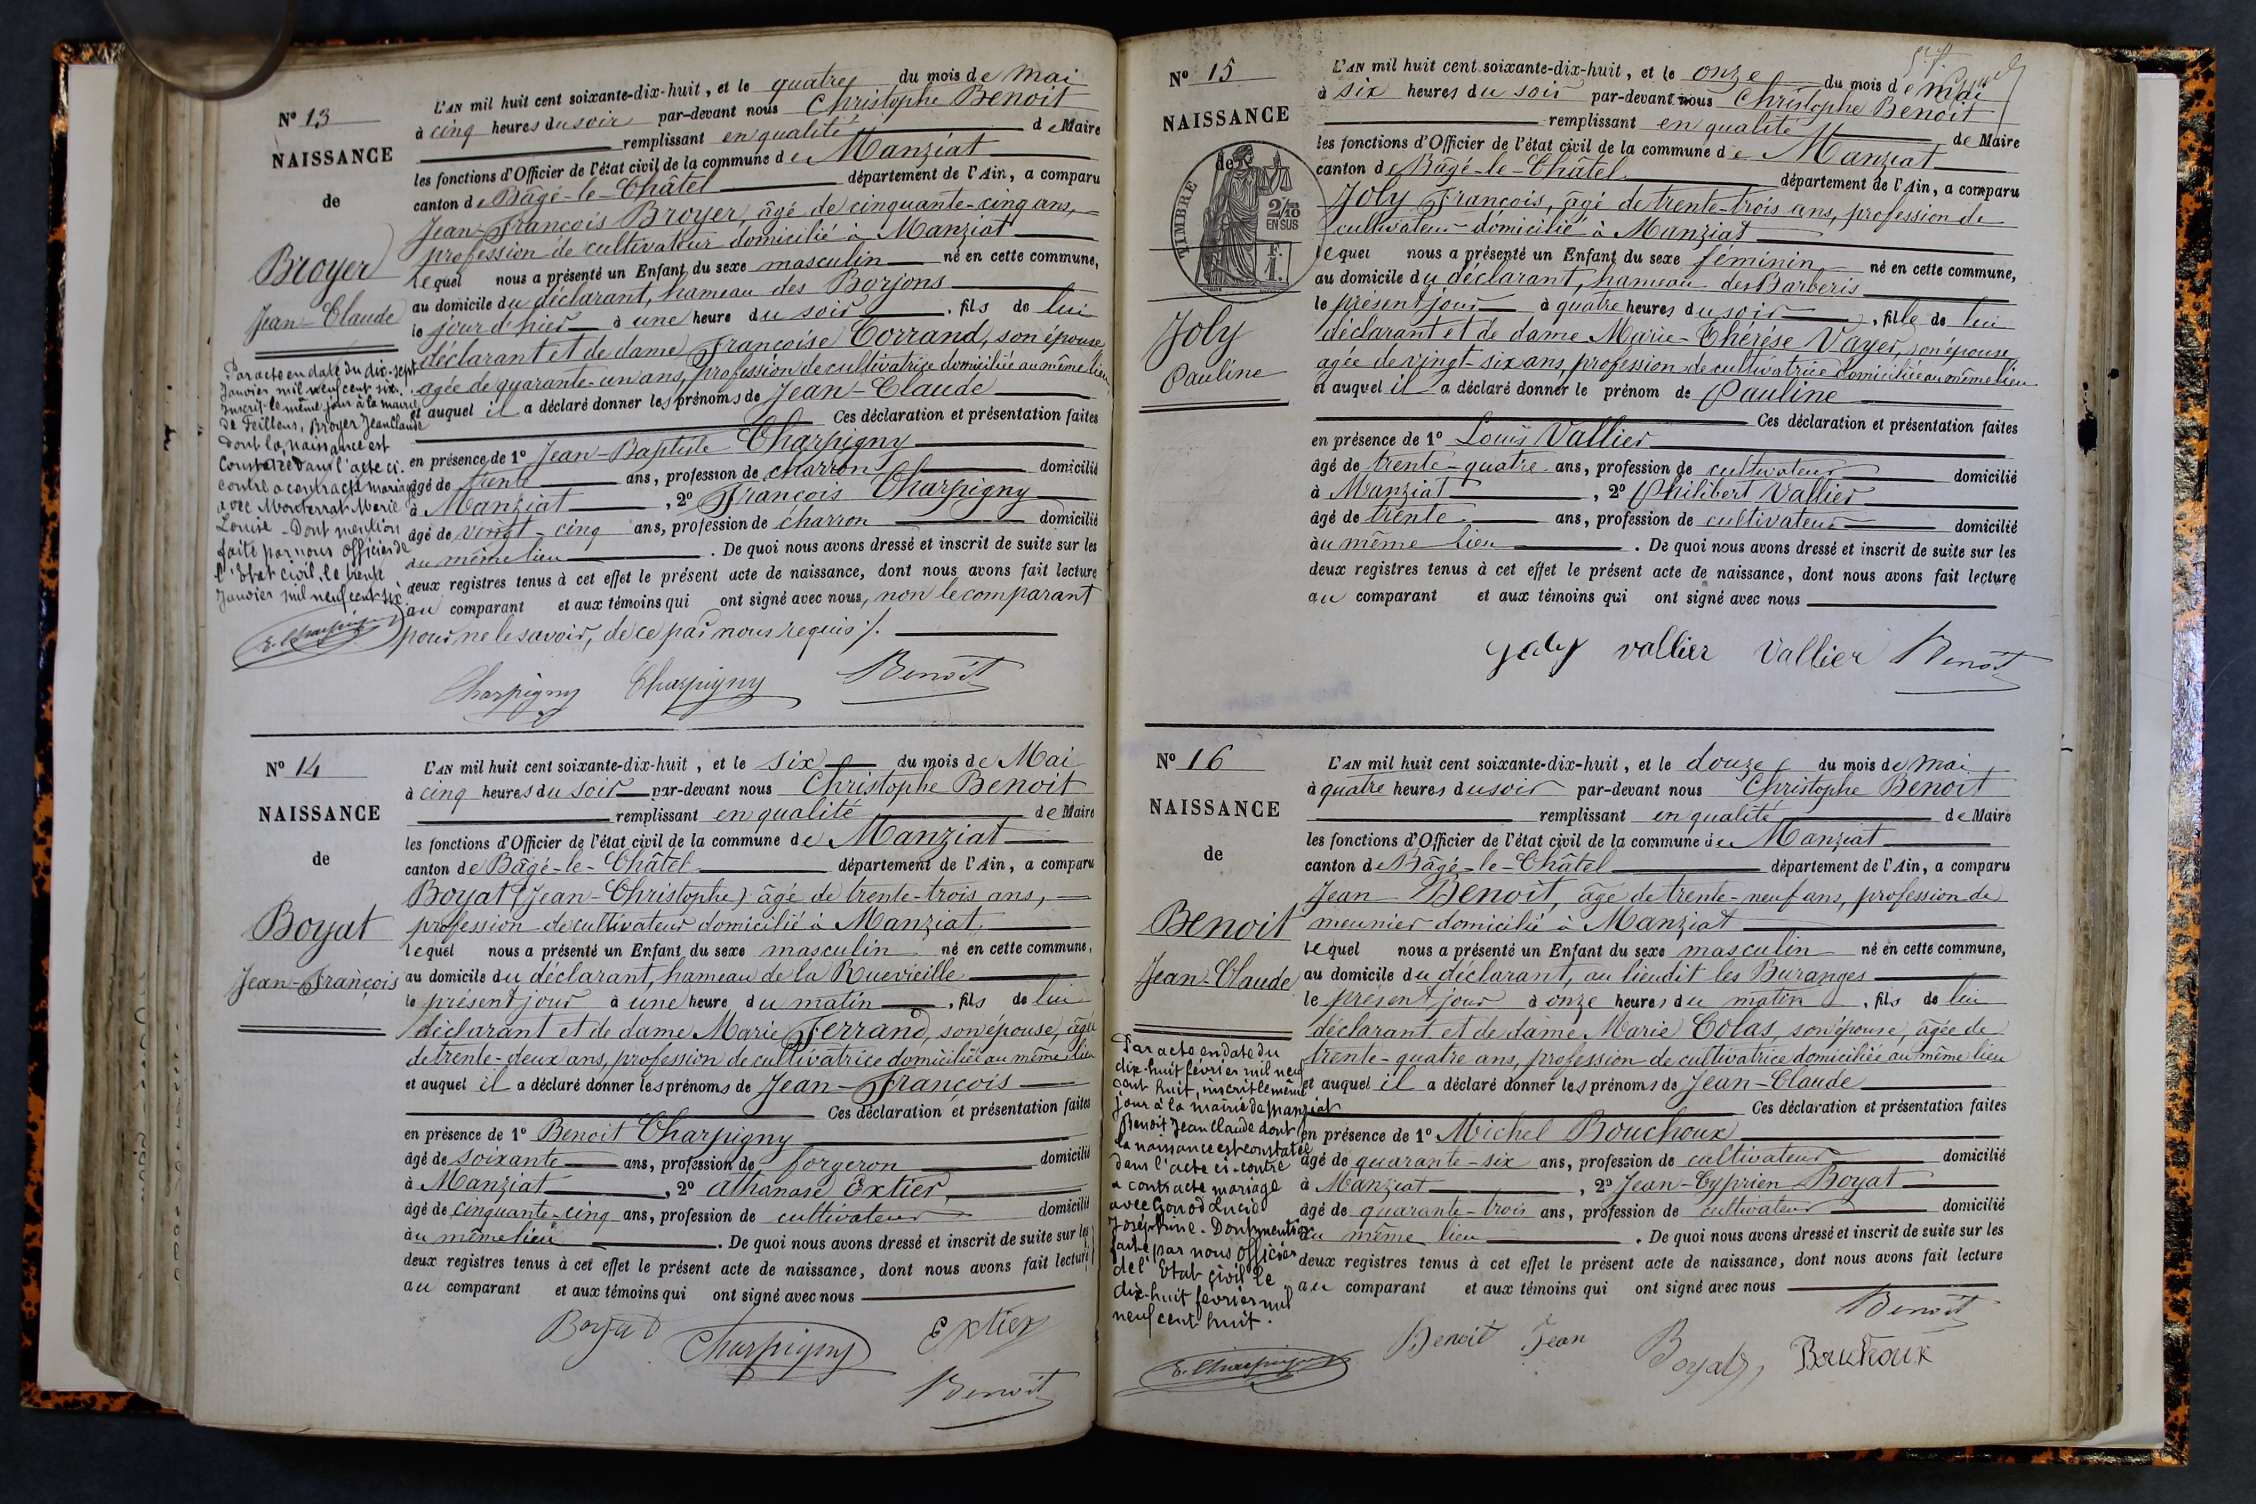 N° 13
NAISSANCE
de
Broyer
Jean-Claude
Par acte en date du dix-sept
Janvier mil neuf cent six.
Inscrit le même jour à la mairie
de Feillens, Broyer Jean Claude
dont la naissance est
constatée dans l'acte ci-
contre a contracté mariage
avec Monterrat Marie
Louise - Dont mention
faite par nous officier de
l'Etat civil, le trente
Janvier mil neuf cent six
L'AN mil huit cent soixante-dix-huit, et le quatre du mois de mai
à cinq heures du soir par-devant nous Christophe Benoit
remplissant en qualité de Maire
les fonctions d'Officier de l'état civil de la commune de Manziat
canton de Bâgé-le-Châtel département de l'Ain, a comparu
Jean-François Broyer, âgé de cinquante-cinq ans,
profession de cultivateur domicilié à Manziat
lequel nous a présenté un Enfant du sexe masculin né en cette commune,
au domicile du déclarant, hameau des Borjons
le jour d'hier à une heure du soir, fils de lui
déclarant et de dame Françoise Corrand, son épouse
agée de quarante-un ans, profession de cultivatrice domiciliée au même lieu
et auquel il a déclaré donner les prénoms de Jean-Claude
Ces déclaration et présentation faites
en présence de 1° Jean-Baptiste Charpigny
âgé de trente ans, profession de charron domicilié
à Manziat, 2° François Charpigny
âgé de vingt-cinq ans, profession de charron domicilié
au même lieu. De quoi nous avons dressé et inscrit de suite sur les
deux registres tenus à cet effet le présent acte de naissance, dont nous avons fait lecture
au comparant et aux témoins qui ont signé avec nous, non le comparant
pour ne le savoir, de ce par nous requis ./.
Charpigny Charpigny Benoit
N° 14
NAISSANCE
de
Boyat
Jean-François
L'AN mil huit cent soixante-dix-huit, et le six du mois de Mai
à cinq heures du soir par-devant nous Christophe Benoit
remplissant en qualité de Maire
les fonctions d'Officier de l'état civil de la commune de Manziat
canton de Bâgé-le-Châtel département de l'Ain, a comparu
Boyat (Jean-Christophe) âgé de trente-trois ans,
profession de cultivateur domicilié à Manziat,
lequel nous a présenté un Enfant du sexe masculin né en cette commune,
au domicile du déclarant, hameau de la Ruevieille
le présent jour à une heure du matin, fils de lui
déclarant et de dame Marie Ferrand, son épouse, âgée
de trente-deux ans, profession de cultivatrice domiciliée au même lieu
et auquel il a déclaré donner les prénoms de Jean-François
Ces déclaration et présentation faites
en présence de 1° Benoit Charpigny
âgé de soixante ans, profession de forgeron domicilié
à Manziat, 2° Athanase Extier,
âgé de cinquante-cinq ans, profession de cultivateur domicilié
au même lieu. De quoi nous avons dressé et inscrit de suite sur les
deux registres tenus à cet effet le présent acte de naissance, dont nous avons fait lecture
au comparant et aux témoins qui ont signé avec nous
Boyat Charpigny Extier
Benoit
N° 15
NAISSANCE
de
TIMBRE
2/10
EN SUS
F.
1.
Joly
Pauline
L'AN mil huit cent soixante-dix-huit, et le onze du mois de Mai
à six heures du soir par-devant nous Christophe Benoit
remplissant en qualité de Maire
les fonctions d'Officier de l'état civil de la commune de Manziat
canton de Bâgé-le-Châtel département de l'Ain, a comparu
Joly François, âgé de trente-trois ans, profession de
cultivateur domicilié à Manziat
lequel nous a présenté un Enfant du sexe féminin né en cette commune,
au domicile du déclarant, hameau des Barberis
le présent jour à quatre heures du soir, fille de lui
déclarant et de dame Marie-Thérèse Vayer, son épouse
agée de vingt-six ans, profession de cultivatrice domiciliée au même lieu
et auquel il a déclaré donner le prénom de Pauline
Ces déclaration et présentation faites
en présence de 1° Louis Vallier
âgé de trente-quatre ans, profession de cultivateur domicilié
à Manziat, 2° Philibert Vallier
âgé de trente ans, profession de cultivateur domicilié
au même lieu. De quoi nous avons dressé et inscrit de suite sur les
deux registres tenus à cet effet le présent acte de naissance, dont nous avons fait lecture
au comparant et aux témoins qui ont signé avec nous
Joly vallier Vallier Benoit
N° 16
NAISSANCE
de
Benoit
Jean-Claude
Par acte en date du
dix-huit février mil neuf
cent huit, inscrit le même
jour à la mairie de Manziat
Benoit Jean Claude dont
la naissance est constatée
dans l'acte ci-contre
a contracté mariage
avec Gonod Lucie
Joséphine. Dont mention
faite par nous officier
de l'Etat civil le
dix-huit février mil
neuf cent huit.
L'AN mil huit cent soixante-dix-huit, et le douze du mois de mai
à quatre heures du soir par-devant nous Christophe Benoit
remplissant en qualité de Maire
les fonctions d'Officier de l'état civil de la commune de Manziat
canton de Bâgé-le-Châtel département de l'Ain, a comparu
Jean Benoit, âgé de trente-neuf ans, profession de
meunier domicilié à Manziat
lequel nous a présenté un Enfant du sexe masculin né en cette commune,
au domicile du déclarant, au lieudit les Buranges
le présent jour à onze heures du matin, fils de lui
déclarant et de dame Marie Colas, son épouse, âgée de
trente-quatre ans, profession de cultivatrice domiciliée au même lieu
et auquel il a déclaré donner les prénoms de Jean-Claude
Ces déclaration et présentation faites
en présence de 1° Michel Bouchoux
âgé de quarante-six ans, profession de cultivateur domicilié
à Manziat, 2° Jean-Cyprien Boyat
âgé de quarante-trois ans, profession de cultivateur domicilié
au même lieu. De quoi nous avons dressé et inscrit de suite sur les
deux registres tenus à cet effet le présent acte de naissance, dont nous avons fait lecture
au comparant et aux témoins qui ont signé avec nous
Benoit
Benoit Jean Boyat Bouchoux